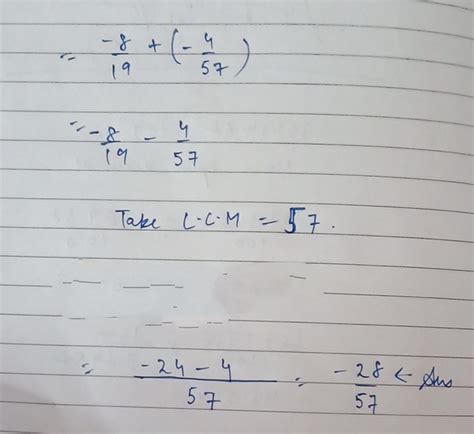 = -8/19 + (-4/57)
= -8/19 - 4/57
Take L.C.M = 57.
= -24-4/57 = -28/57 ← Ans